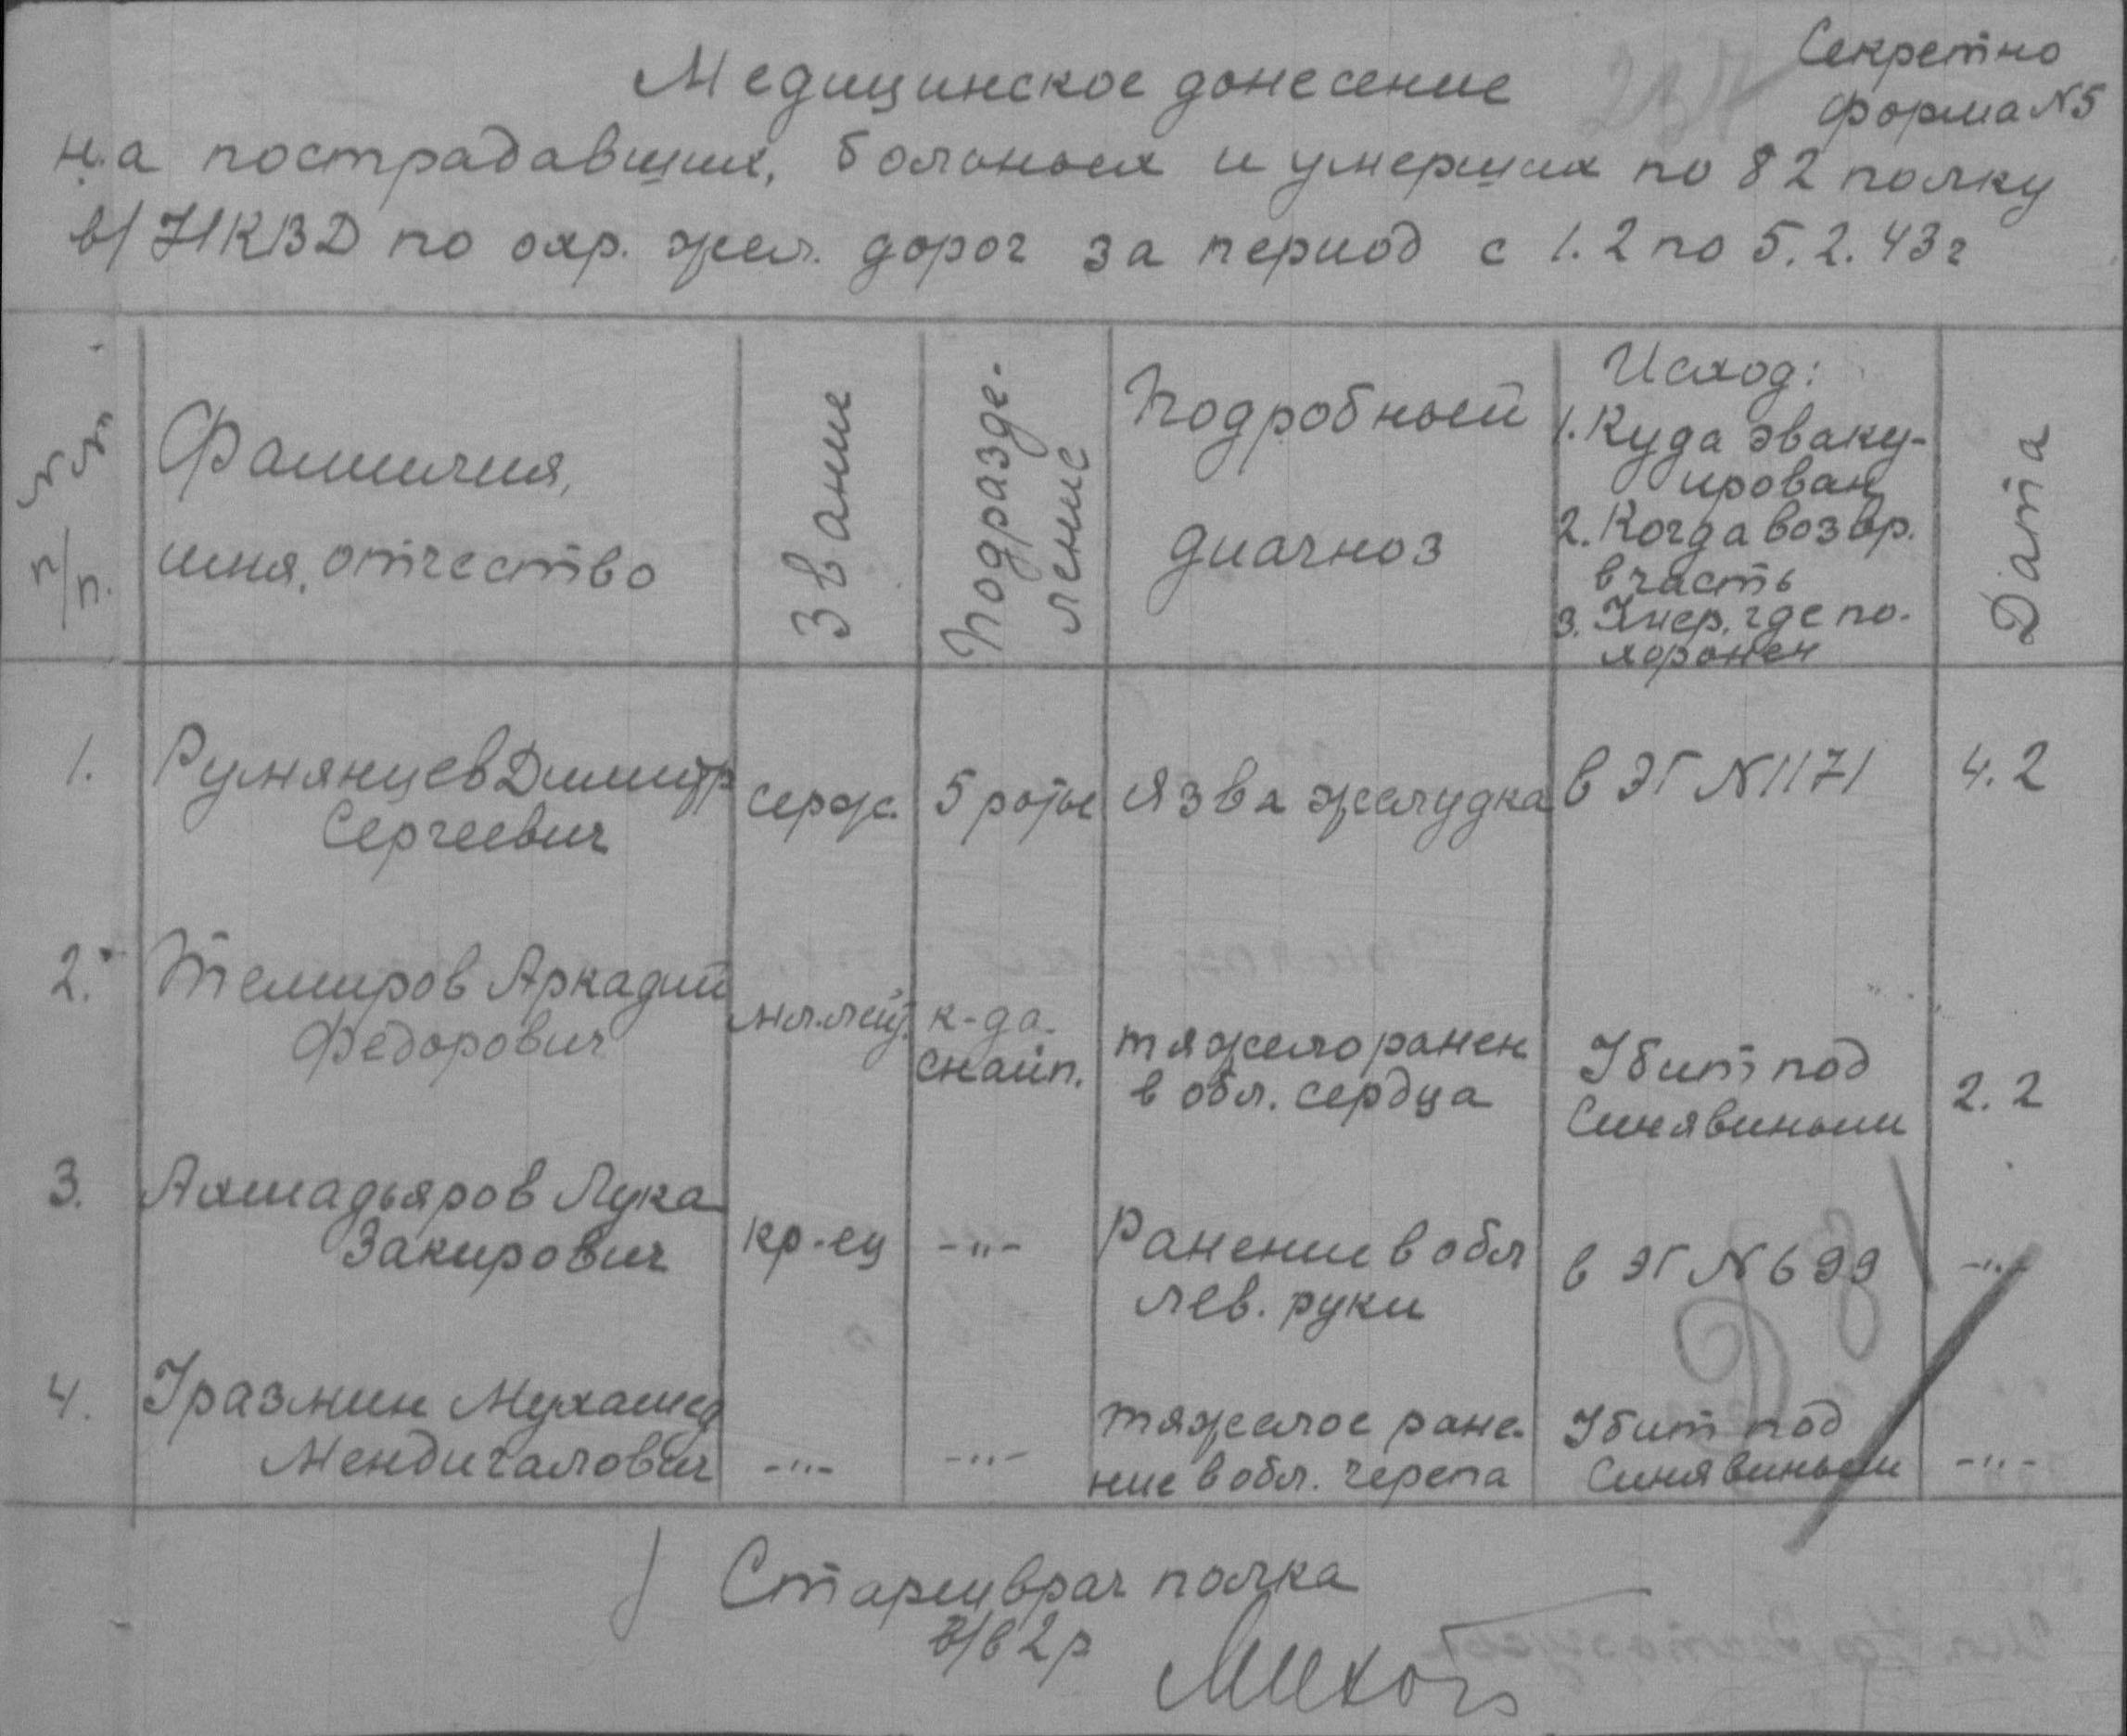 Секретно
Форма N5
Медицинское донесение
на пострадавших, больных и умерших по 82 полку
в/НКВД по охр. жел. дорог за период с 1.2 по 5.2.43г
NN п/п.
Фамилия,
имя, отчество
Звание
Подразде-
ление
Подробный
диагноз
Исход:
1. Куда эваку-
ирован
2. Когда возвр.
в часть
3. Умер, где по-
хоронен
Дата
1. Румянцев Дмитр серж. 5 роты Язва желудка в ЭГ N1171 4.2
Сергеевич
2. Темиров Аркадий мл.лейт. к-да. тяжело ранен Убит под 2.2
Федорович снайп. в обл. сердца Синявиным
3. Ахмадьяров Лука кр-ец -"- Ранение в обл в ЭГ N699 -"-
Закирович лев. руки
4. Уразмин Мухамед -"- -"- тяжелое ране- Убит под -"-
Мендигалович ние в обл. черепа Синявиным
Старш врач полка
в/в 2р